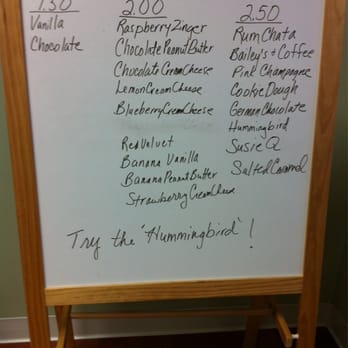 1.50
Vanilla
Chocolate
2.00
Raspberry Zinger
Chocolate Peanut Butter
Chocolate Cream Cheese
Lemon Cream Cheese
Blueberry Cream Cheese
Red Velvet
Banana Vanilla
Banana Peanut Butter
Strawberry Cream Cheese
2.50
Rum Chata
Bailey's + Coffee
Pink Champagne
Cookie Dough
German Chocolate
Hummingbird
Susie Q
Salted Caramel
Try the 'Hummingbird' !